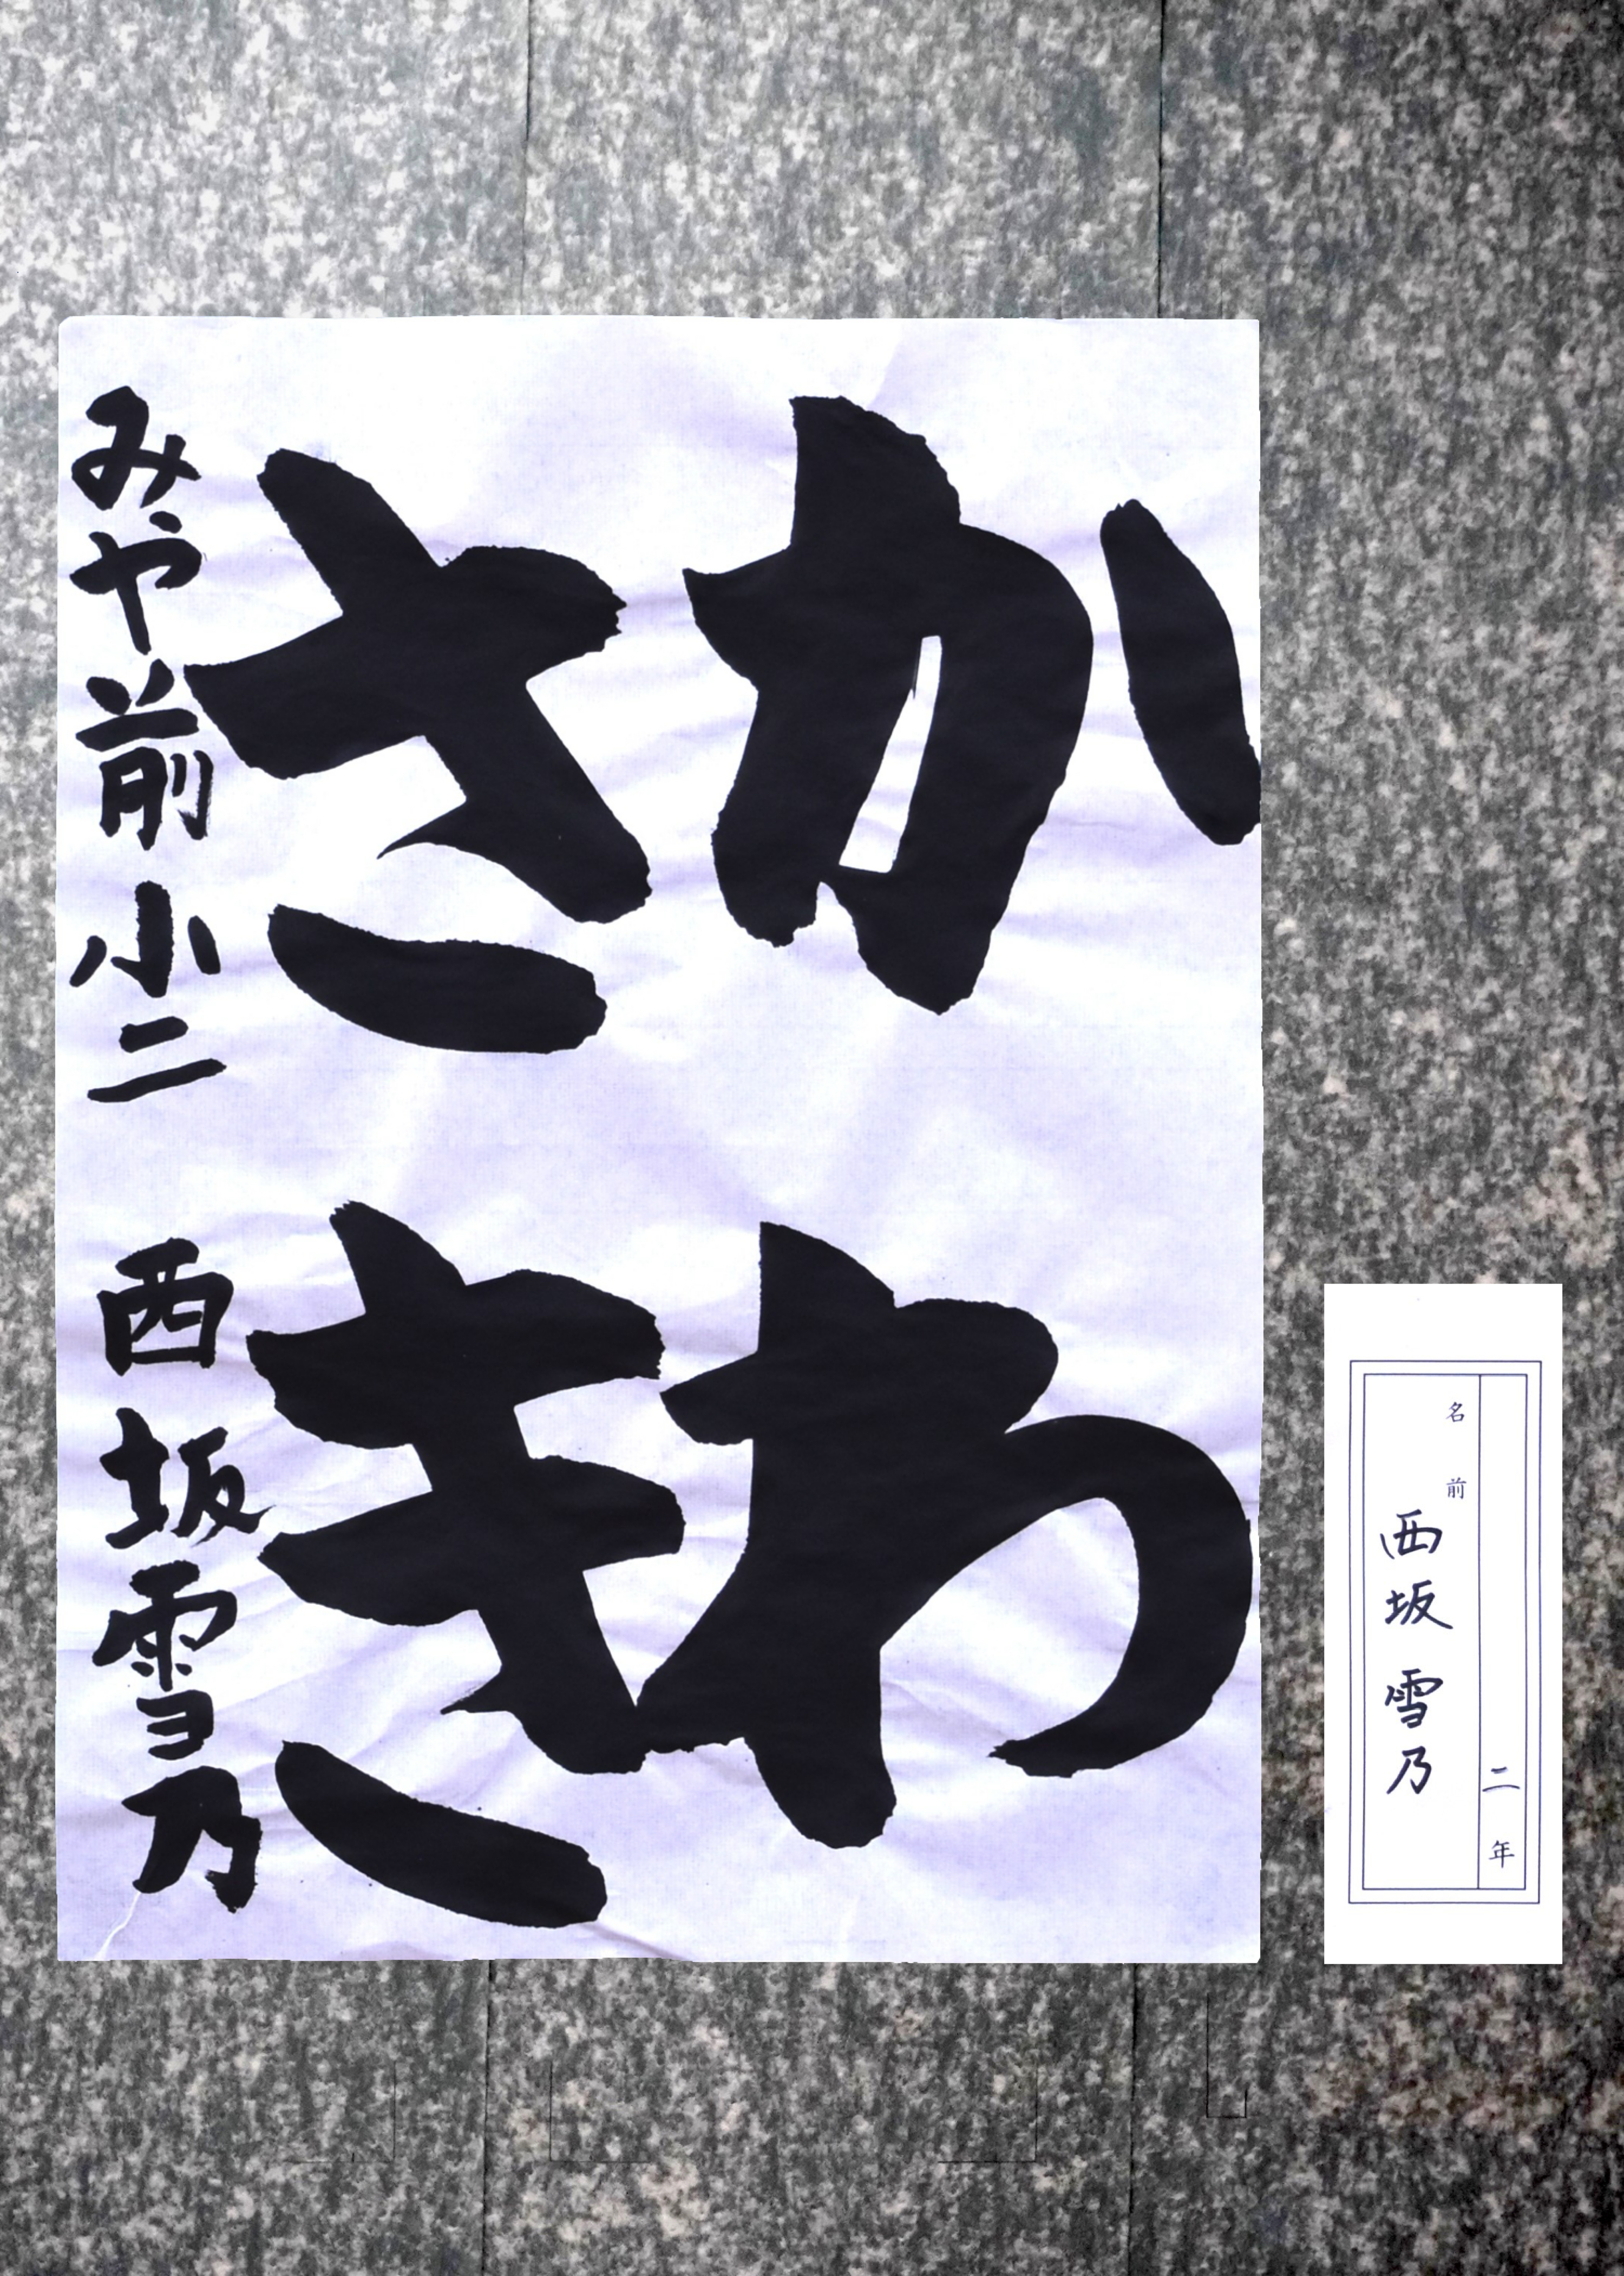 かわ
さき
みや前小二 西坂雪乃
二年
名前
西坂雪乃